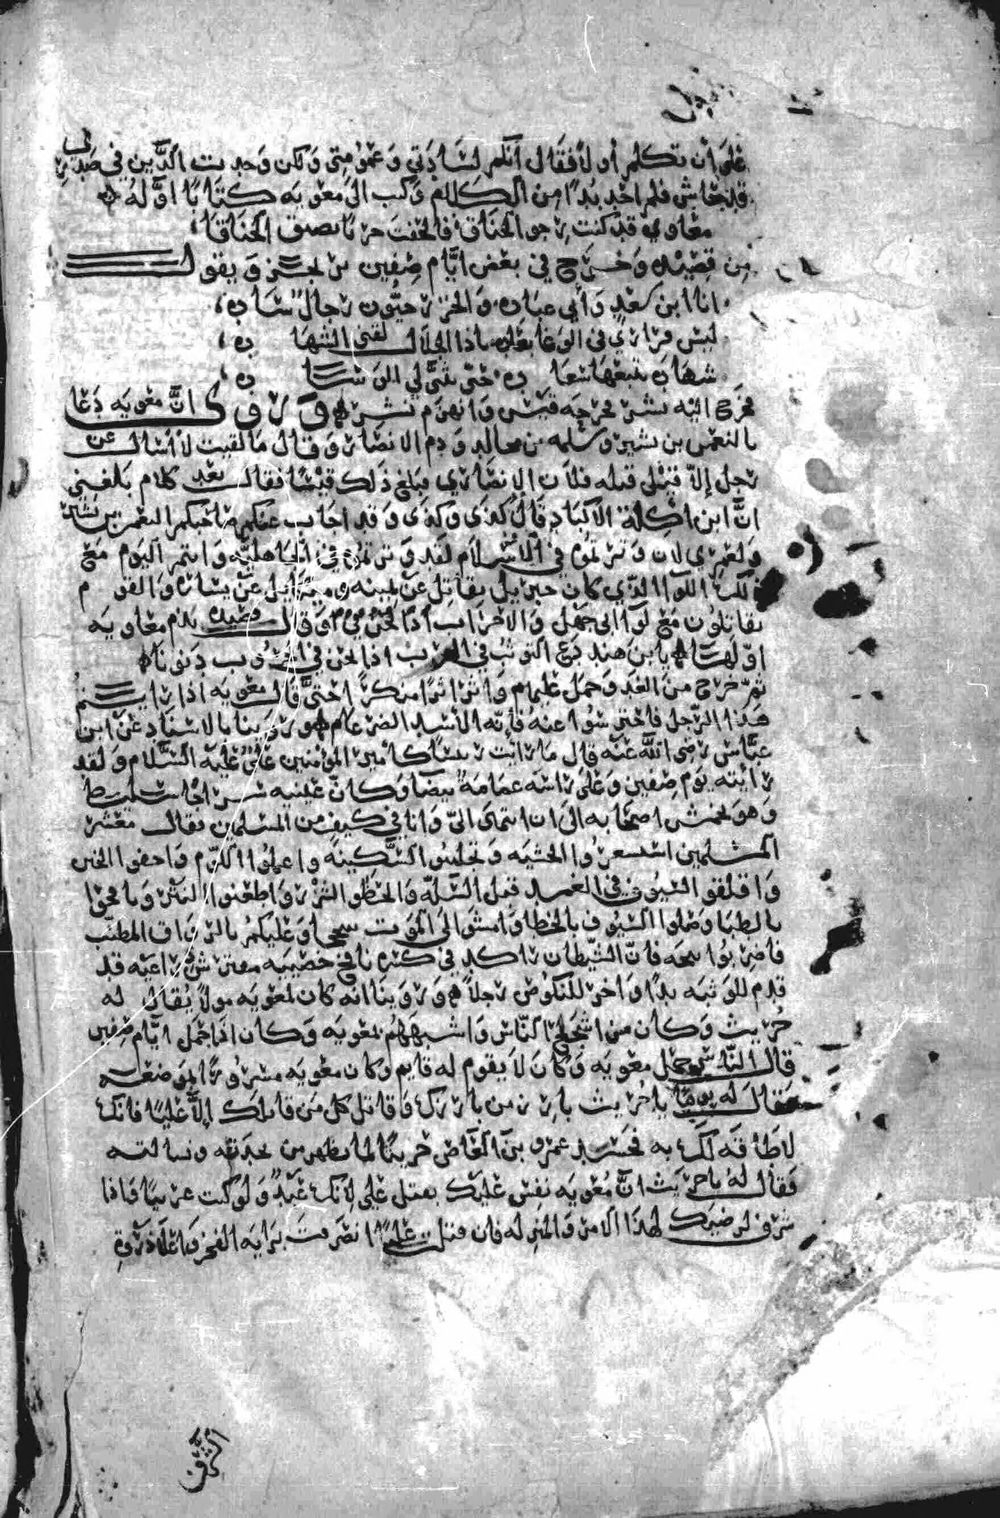 على أن تكلم أو لا فقال أتكلم لسادتي وعمومتي ولكن وجدت الدين في صدري
قد جاش فلم أجد بدا من الكلام وكتب إلى معويه كتابا أوله
معاوي قد كنت رجو الخناق فالحفت حربا تضيق الخناقا
من قصيده وخرج في بعض ايام صفين يرتجز ويقول
انا ابن سعد وأبي عباده والخزرجيون رجال ساده
ليس فراري في الوغا بعاده ياذا الجلال لقني الشهاده
شهادة تتبعها سعاده حتى تثنى لي الوساده
فخرج اليه بشر فخرجه قيس وانهزم بشر وروى ان معويه دعا
بالنعمن بن بشير ومسلمه بن مخالد وذم الانصار وقال ما لقيت لا أسال عن
رجل إلا قيل قتله فلان الانصاري فبلغ ذلك قيسا فقال بعد كلام بلغني
ان ابن اكلة الاكباد قال كذى وكذى وقد اجاب عنكم صاحبكم النعمن بن بشير
ولعمري لان وترتموه في الاسلام لقد وترتموه في الجاهليه وانتم اليوم مع
ذلك اللوا الذي كان جبريل يقاتل عن يمينه وميكايل عن يساره والقوم
يقاتلون مع لوا ابي جهل والاحزاب وقال قصيده يذم معاويه
اولها يا بن هند دع التوثب في الحرب اذا نحن في الحروب دنونا
ثم خرج من الغد وحمل عليهم واثر اثرا منكرا حتى قال معويه اذا رايتم
هذا الرجل فاختبوا عنه فإنه الأسد الضرغام وروينا بالاسناد عن ابن
عباس رضي الله عنه قال ما رأيت رئيسا كامير المؤمنين علي عليه السلام ولقد
رأيته يوم صفين وعلى راسه عمامة بيضا وكان عينيه سراجا سليط
وهو يحمش اصحابه الى ان انتهى الي وانا في كنف من المسلمين فقال معشر
المسلمين استشعروا الخشيه وتجلببوا السكينه واكملوا اللوم واخفوا الخنن
واقلقوا السيوف في الغمد قبل السله والحظوا الشزر واطعنوا النتر ونافحوا
بالظبا وصلوا السيوف بالخطا وامشوا الى الموت سجحا وعليكم بالرواق المطنب
فاضربوا ثبجه فان الشيطان راكد في كسره نافج حضنيه مفترش ذراعيه قد
قدم للوثبه يدا واخر للنكوص رجلا وروينا انه كان لمعويه مولا يقال له
حريث وكان من اشجع الناس واشبههم لمعويه وكان اذا حمل ايام صفين
قال الناس حمل معويه وكان لا يقوم له قايم وكان معويه مسرورا لموضعه
فقال له يوما يا حريث بارز من بارزك وقاتل كل من قاتلك إلا عليا فانك
لا طاقه لك به فحسد عمرو بن العاص حريثا لما يظهر من نجدته وبسالته
فقال له يا حريث ان معويه نفس عليك بقتل علي لانك عبد ولو كنت عربيا ذا
شرف لرضيك لهذا الامر والخبر له فان قتلت عليا انصرفت براية الفخر واعلا ذروة
الشرف